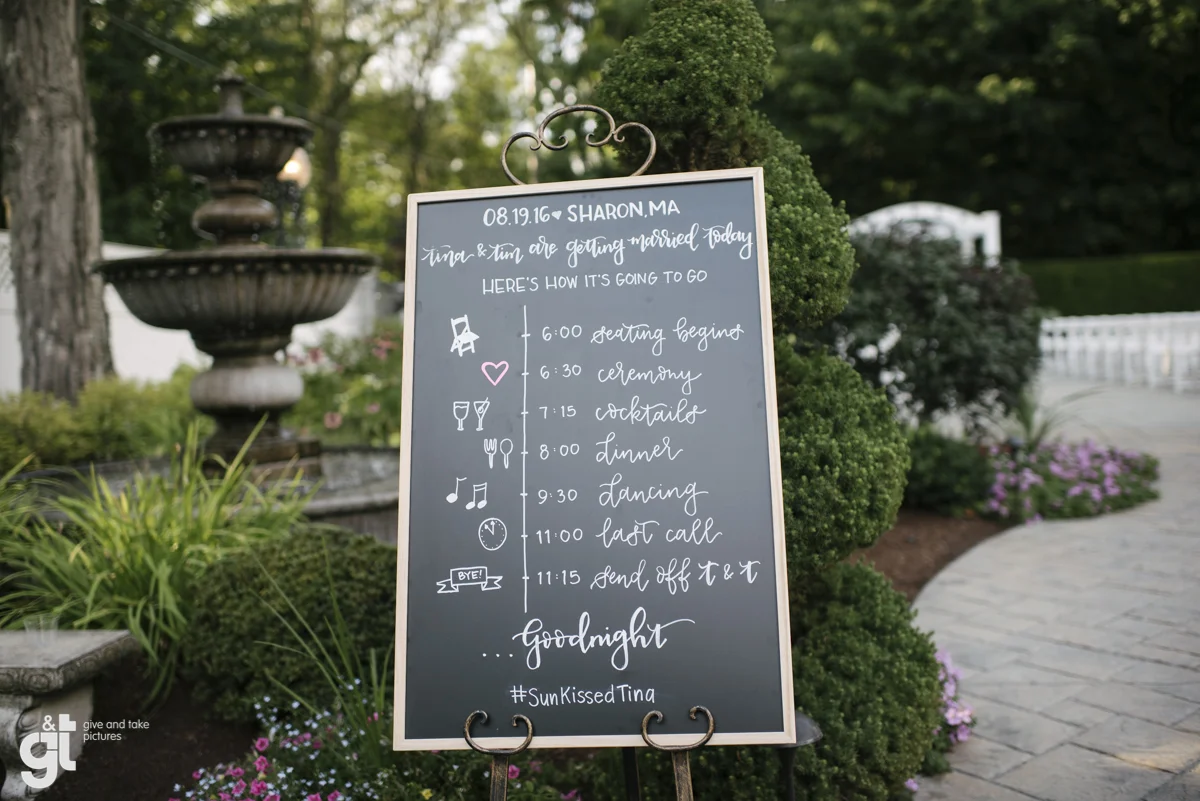 08.19.16 ♥ SHARON, MA
tina & tim are getting married today
HERE'S HOW IT'S GOING TO GO
6:00 seating begins
6:30 ceremony
7:15 cocktails
8:00 dinner
9:30 dancing
11:00 last call
BYE! 11:15 send off t & t
...Goodnight
#SunKissedTina
g&t give and take
pictures